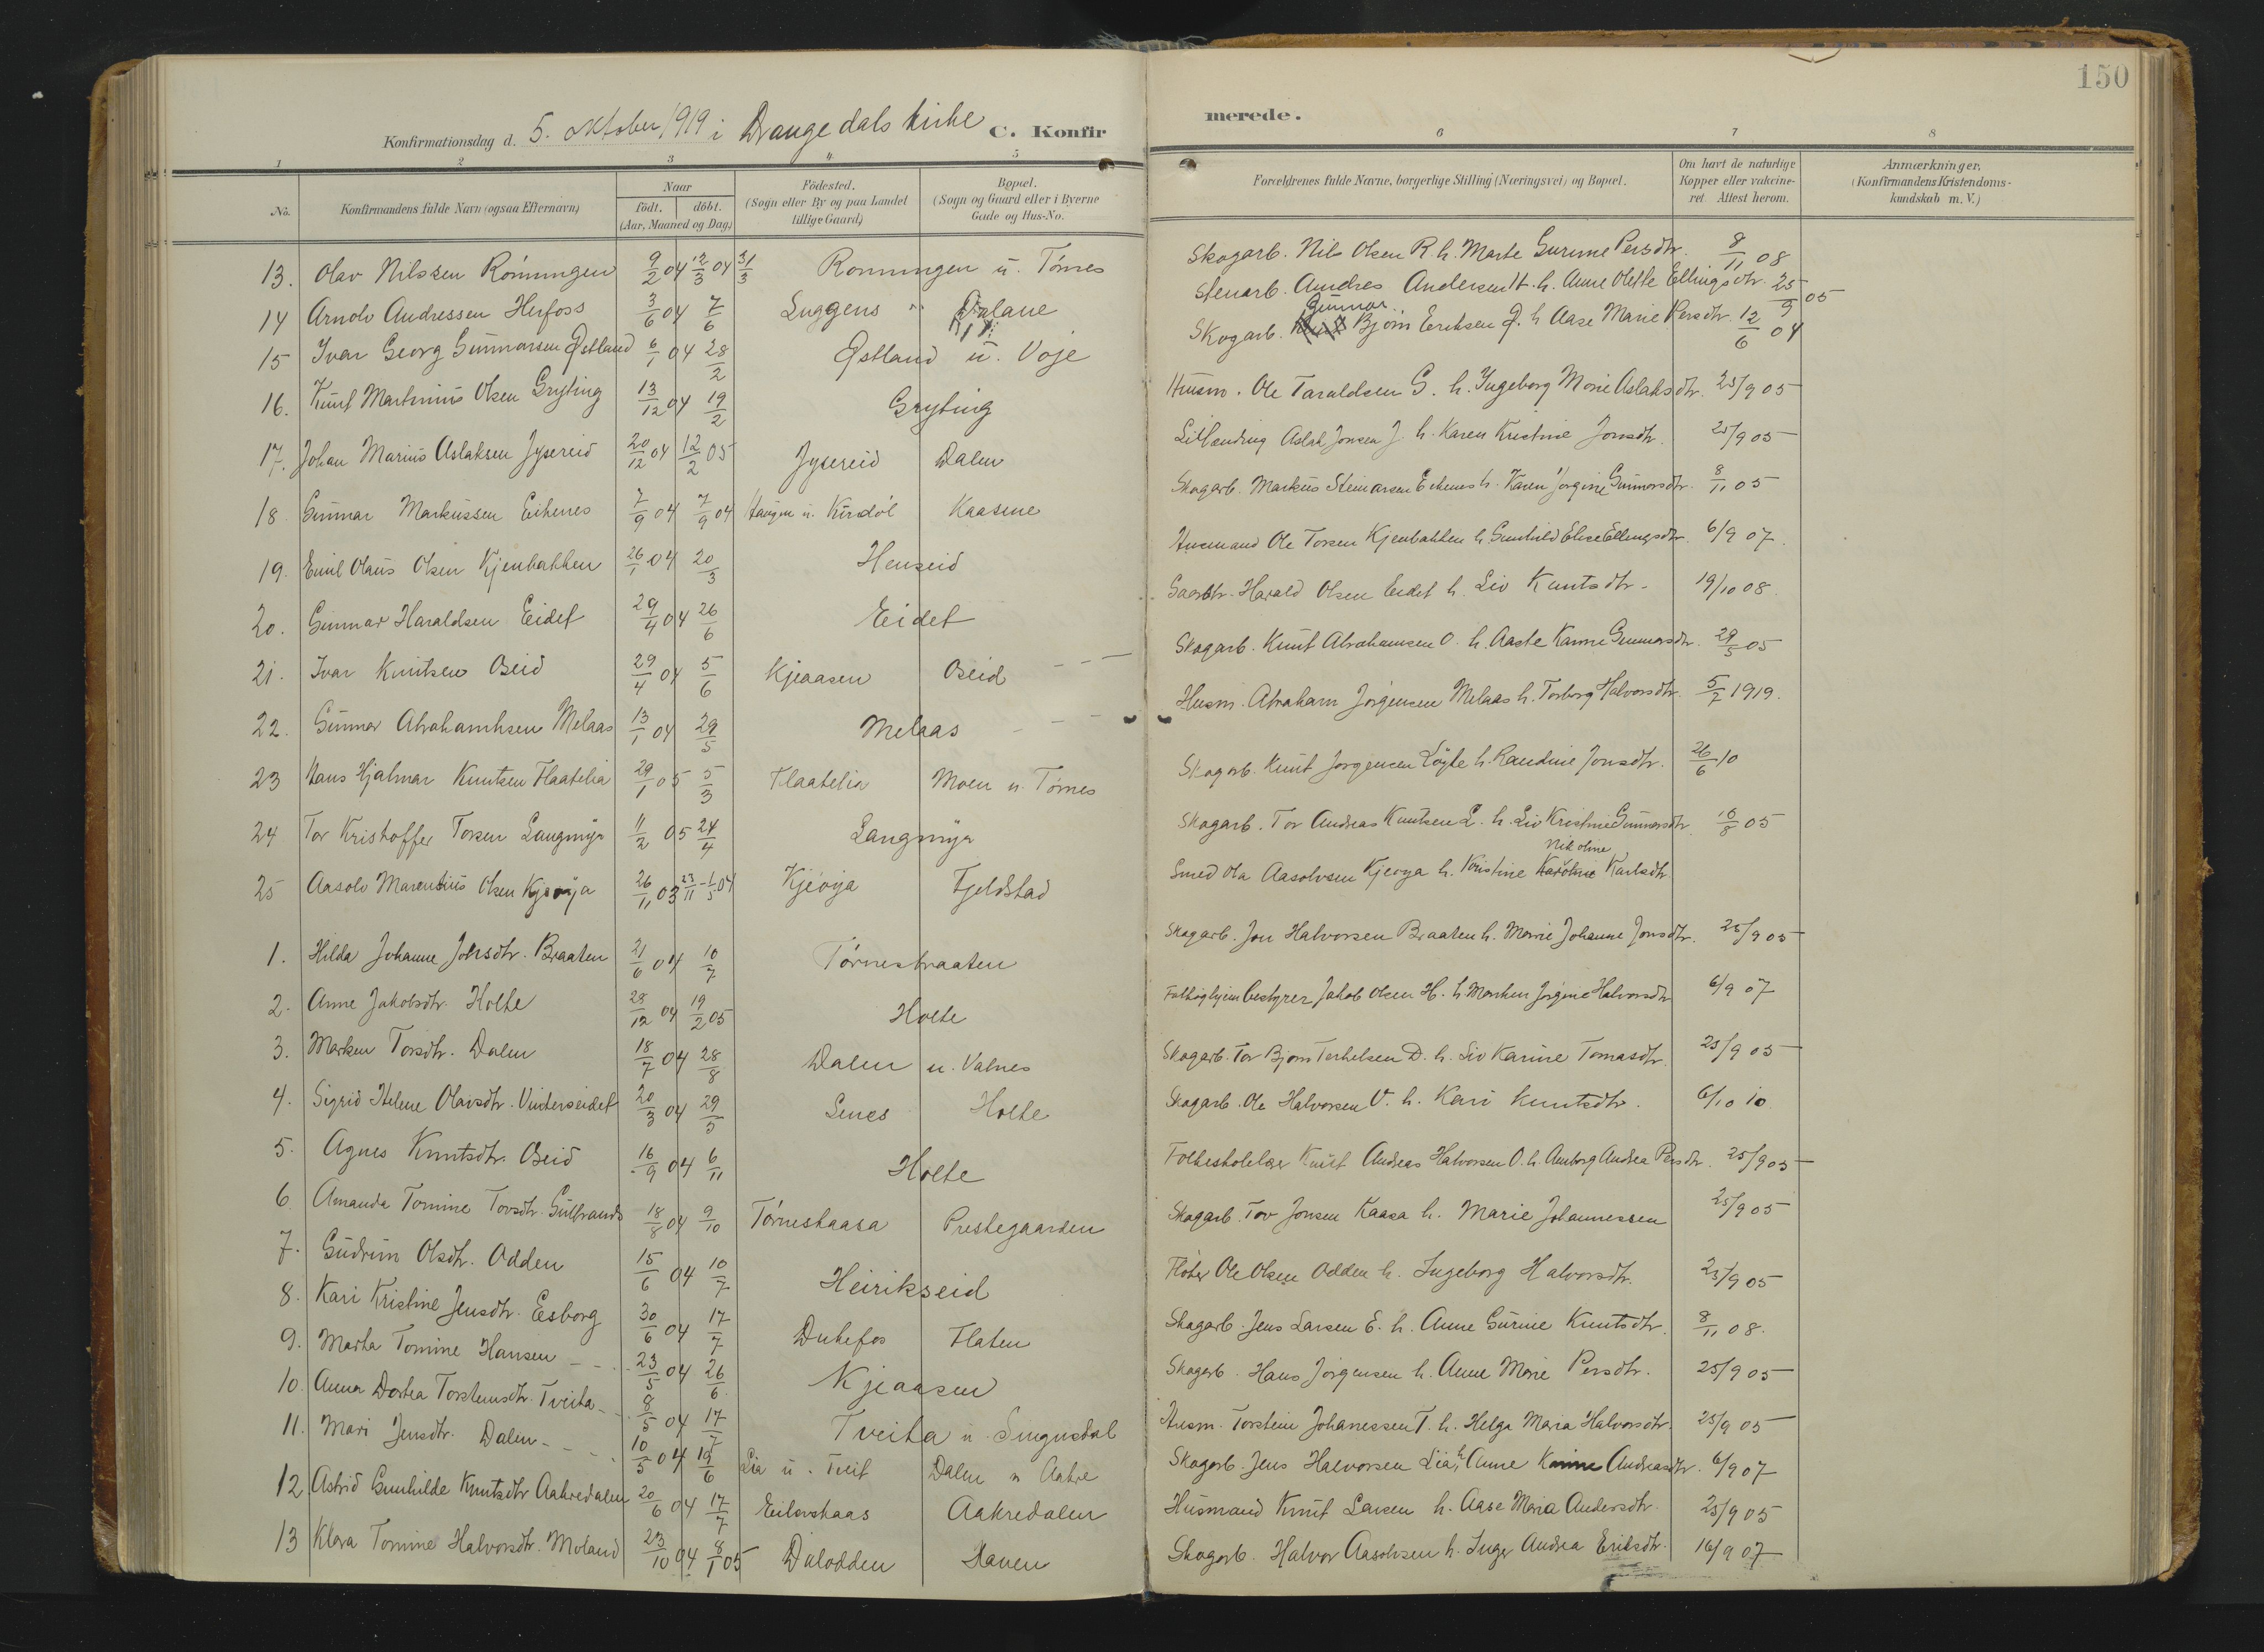 150
Konfirmationsdag d. 5. oktober 1919 i Drangedals kirke C. Konfirmerede.
1 2 3 4 5 6 7 8
No. Konfirmandens fulde Navn (ogsaa Efternavn) Naar födt. döbt. (Aar, Maaned og Dag) Födested. (Sogn eller By og paa Landet tillige Gaard) Bopæl. (Sogn og Gaard eller i Byerne Gade og Hus-No. Forældrenes fulde Navne, borgerlige Stilling (Næringsvei) og Bopæl. Om havt de naturlige Kopper eller vakcineret. Attest herom. Anmærkninger. (Konfirmandens Kristendomskundskab m. V.)
13. Olav Nilssen Rönningen 9/2 04 12/3 04 31/3 Ronningen u. Törnes Skogarb. Nils Olsen R. h. Marte Gurine Persdtr. 8/11 08
14 Arnolv Andressen Herfoss 3/6 04 7/6 Luggens " Dalane Stenarb. Andres Andersen H. h. Anne Olette Ellingsdtr. 25/9 05
15 Ivar Georg Gunnarsen Østland 6/1 04 28/2 Østland u. Voje Skogarb. Gunnar Bjørn Eriksen Ø. h Aase Marie Persdtr. 12/6 04
16. Knut Martinius Olsen Gryting 13/12 04 19/2 Gryting Husm. Ole Taraldsen G. h. Ingeborg Marie Aslaksdtr. 25/9 05
17. Johan Marius Aslaksen Jysereid 20/12 04 12/2 05 Jysereid Dalen Aslak Jonsen J. h. Karen Kristine Jonsdtr. 25/9 05
18 Gunnar Markussen Echenes 7/9 04 7/9 04 Haugen u. Kurdöl Kaasene Skogarb. Markus Steinarsen Echenes h. Karen Jorgine Gunnarsdtr. 8/11 05
19. Emil Olaus Olsen Kjenbakken 26/1 04 20/3 Henseid Husmand Ole Torsen Kjenbakken h Gunhild Elise Ellingsdtr. 6/9 07.
20. Gunnar Haraldsen Eidet 29/4 04 26/6 Eidet Gaardbr. Harald Olsen Eidet h. Liv Knutsdtr. 19/10 08.
21. Ivar Knutsen Oseid 29/4 04 5/6 Kjeaasen Oseid Skogarb. Knut Abrahamsen O. h. Aaste Karine Gunnarsdtr. 29/5 05
22. Gunnar Abrahamsen Melaas 13/1 04 29/5 Melaas Husm. Abraham Jörgensen Melaas h. Torborg Halvorsdtr. 5/7 1919.
23 Hans Hjalmar Knutsen Flaatelia 29/1 05 5/3 Flaatelia Moen u. Törnes Skogarb. Knut Jorgensen Löyte h. Randine Jonsdtr. 26/6 10
24 Tor Kristoffer Torsen Langmyr 11/2 05 24/4 Langmyr Skogarb. Tor Andreas Knutsen L. h. Liv Kristine Gunnarsdtr. 18/8 05
25 Aasolv Marentius Olsen Kjeöya 26/11 03 23/11 - 1/5 04 Kjeöya Fjeldstad Smed Ola Aasolvsen Kjeoya h. Kristine Karoline Nikoline Karlsdtr.
1. Hilda Johanne Jonsdtr. Braaten 21/6 04 10/7 Törnesbraaten Skogarb. Jon Halvorsen Braaten h. Marie Johanne Jonsdtr. 25/9 05
2. Anne Jakobsdtr. Holte 28/12 04 19/2 05 Holte Fattighjembestyrer Jakob Olsen H. h Marken Jorgine Halvorsdtr 6/9 07
3. Marken Torsdtr. Dalen 18/7 04 28/8 Dalen u. Valnes Skogarb. Tor Bjørn Terkelsen D. h. Liv Karine Tomasdtr. 25/9 05
4. Sigrid Helene Olavsdtr. Vinterseidet 20/3 04 29/5 Senes Holte Skogarb. Ole Halvorsen V. h. Kari Knutsdtr. 6/10 10
5. Agnes Knutsdtr. Oseid 16/9 04 6/11 Holte Folkeskolelær Knut Andreas Halvorsen O. h. Amborg Andrea Persdtr. 25/9 05
6 Amanda Tomine Torsdtr. Gulbrands 18/8 04 9/10 Törneskaasa Prestegaarden Skogarb. Tov Jonsen Kaasa h. Marie Johannessen 25/9 05
7. Gudrun Olsdtr. Odden 15/6 04 10/7 Heirikseid Flöter Ole Olsen Odden h. Ingeborg Halvorsdtr. 25/9 05
8. Kari Kristine Jensdtr. Esborg 30/6 04 17/7 Dukefos Flaten Skogarb. Jens Larsen E. h. Anne Gurine Knutsdtr. 8/11 08.
9. Marta Tomine Hansen 23/5 04 26/6 Kjeaasen Skogarb. Hans Jörgensen h. Anne Marie Persdtr. 25/9 05
10. Anna Dortea Torsteinsdtr. Tveita 8/5 04 17/7 Tveita u. Sungusdal Husm. Torstein Johanessen T. h. Helga Maria Halvorsdtr. 25/9 05
11. Mari Jensdtr. Dalen 10/5 04 19/6 Lia u. Tveit Dalen u Aakre Skogarb. Jens Halvorsen Lia, h Anne Karine Andreasdtr. 6/9 07
12 Astrid Gunhilde Knutsdtr Aakredalen 20/6 04 17/7 Eilevskaas Aakredalen Husmand Knut Larsen h. Aase Maria Andersdtr. 25/9 05
13 Klara Tomine Halvorsdtr. Moland 23/10 04 8/1 05 Dalodden Daven Skogarb. Halvor Aasolvsen h. Inger Andrea Eriksdtr. 16/9 07